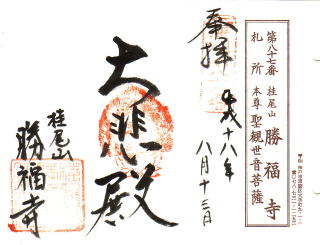 奉拝
平成十八年
八月十三日
大悲殿
桂尾山
勝福寺
第八十七番
札所
桂尾山 勝福寺
本尊 聖観世音菩薩